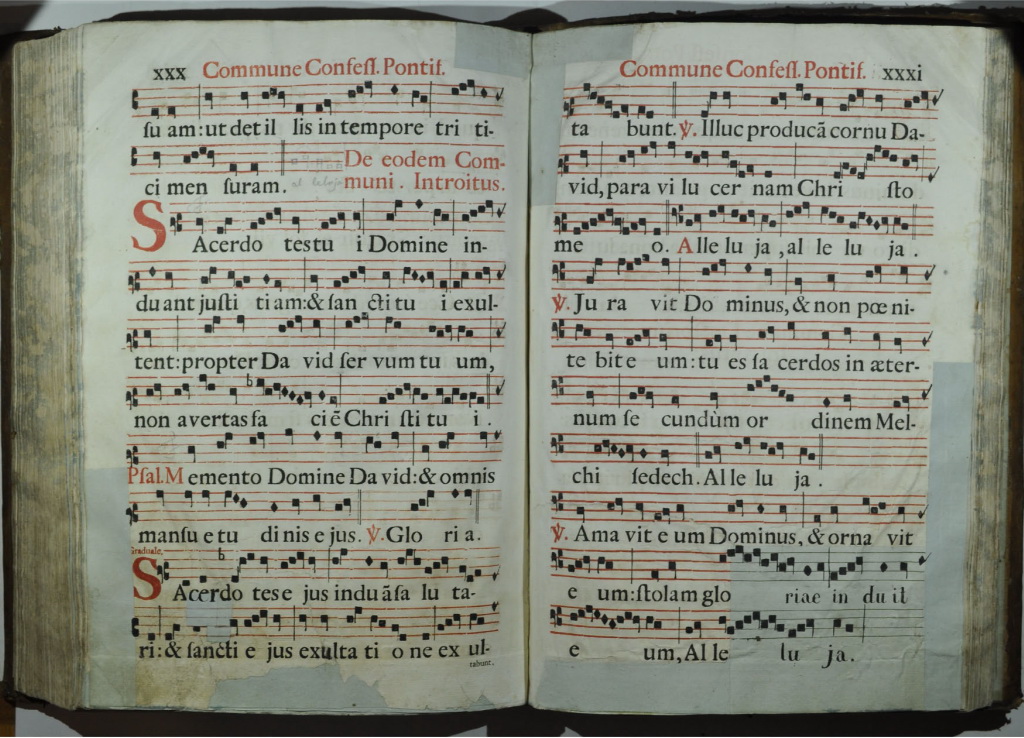 xxx Commune Confeſſ. Pontif.
ſu am: ut det il lis in tempore tri ti-
ci men ſuram. De eodem Com-
muni. Introitus.
SAcerdo testu i Domine in-
du ant juſti ti am: & ſan cti tu i exul-
tent: propter Da vid ſer vum tu um,
non avertas fa ci ē Chri ſti tu i.
Pſal. Memento Domine Da vid: & omnis
manſu e tu di nis e jus. ℣. Glo ri a.
Graduale.
SAcerdo tes e jus indu ā ſa lu ta-
ri: & ſancti e jus exulta ti o ne ex ul-
tabunt.
Commune Confeſſ. Pontif. xxxi
ta bunt. ℣. Illuc producā cornu Da-
vid, para vi lu cer nam Chri ſto
me o. Alle lu ja, al le lu ja.
℣. Ju ra vit Do minus, & non pœ ni-
te bit e um: tu es ſa cerdos in æter-
num ſe cundùm or dinem Mel-
chi ſedech. Al le lu ja.
℣. Ama vit e um Dominus, & orna vit
e um: ſtolam glo riae in du it
e um, Al le lu ja.